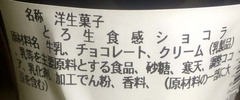 名称 洋生菓子
とろ生食感ショコラ
原材料名 牛乳、チョコレート、クリーム(乳製品)
乳等を主要原料とする食品、砂糖、寒天、
乳化剤、加工でん粉、香料、(原材料の一部に大
を含む)